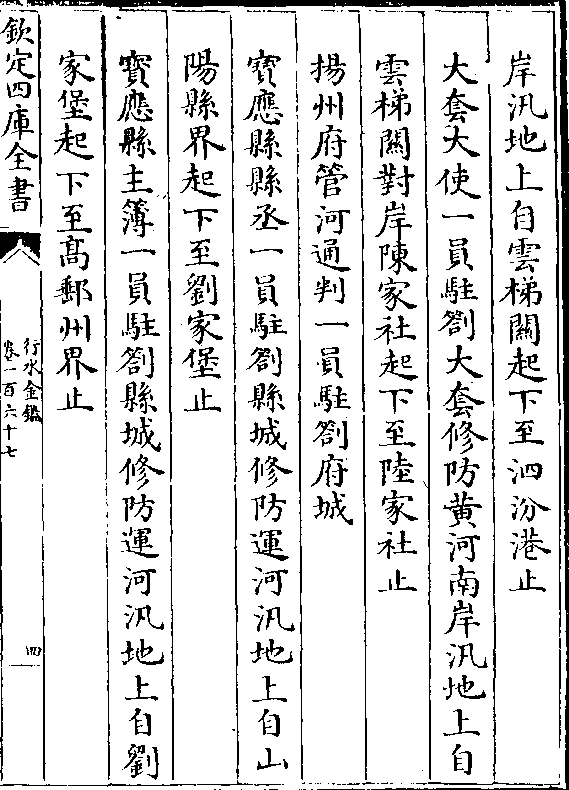 岸汛地上自雲梯關起下至泗汾港止
大套大使一員駐劄大套修防黄河南岸汛地上自
雲梯關對岸陳家社起下至陸家社止
揚州府管河通判一員駐劄府城
寳應縣縣丞一員駐劄縣城修防運河汛地上自山
陽縣界起下至劉家堡止
寳應縣主簿一員駐劄縣城修防運河汛地上自劉
家堡起下至髙郵州界止
欽定四庫全書
行水金鑑
卷一百六十七
四